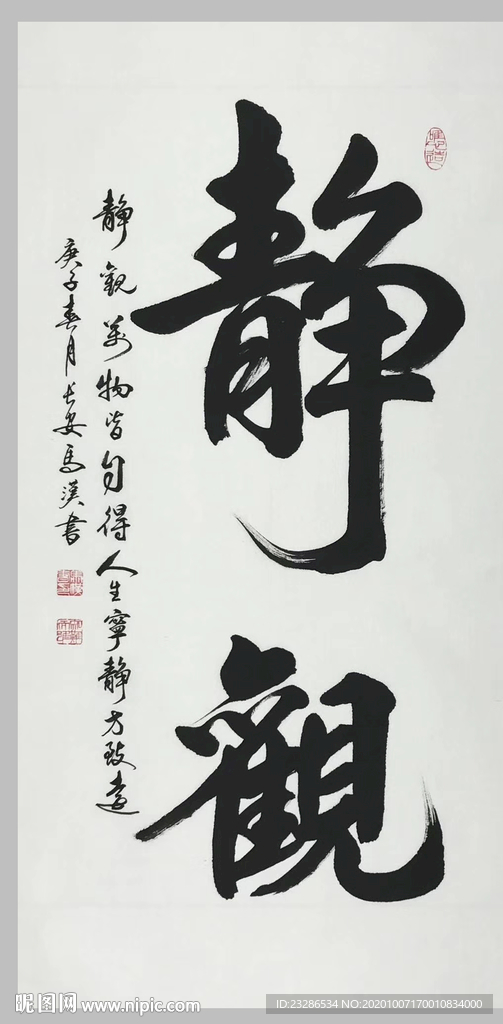 静觀
静觀萬物皆自得人生寧静方致遠
庚子春月長安馬漢書
昵图网 www.nipic.com
ID:23286534 NO:20201007170010834000